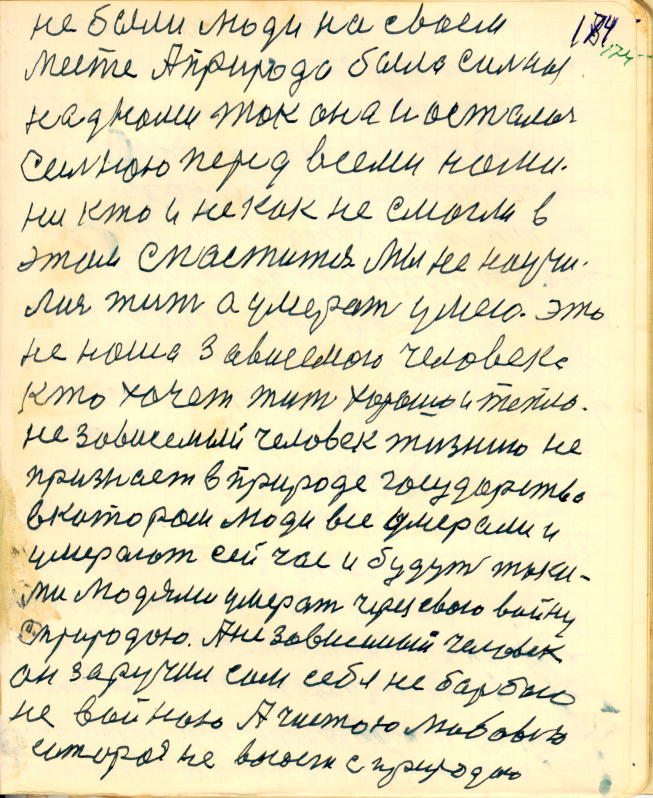 174
174
не были люди на своем
месте А природа была силный
надномы ток она и осталася
силною перед всеми номи.
ни кто и не как не смогли в
этом спастится Мы не научи-
лися жит а умерат умею. это
не ноша зависемою человека
кто хочет жит хорошо и тепло.
не зависемый человек жизнию не
признает в природе государства
в котором люди все умерали и
умерают сей час и будут таки-
ми людями умерат через свою войну
с природою. А не зависимый человек
он заручил сам себя не барбою
не войною А чистою любовю
которая не воюет с природою